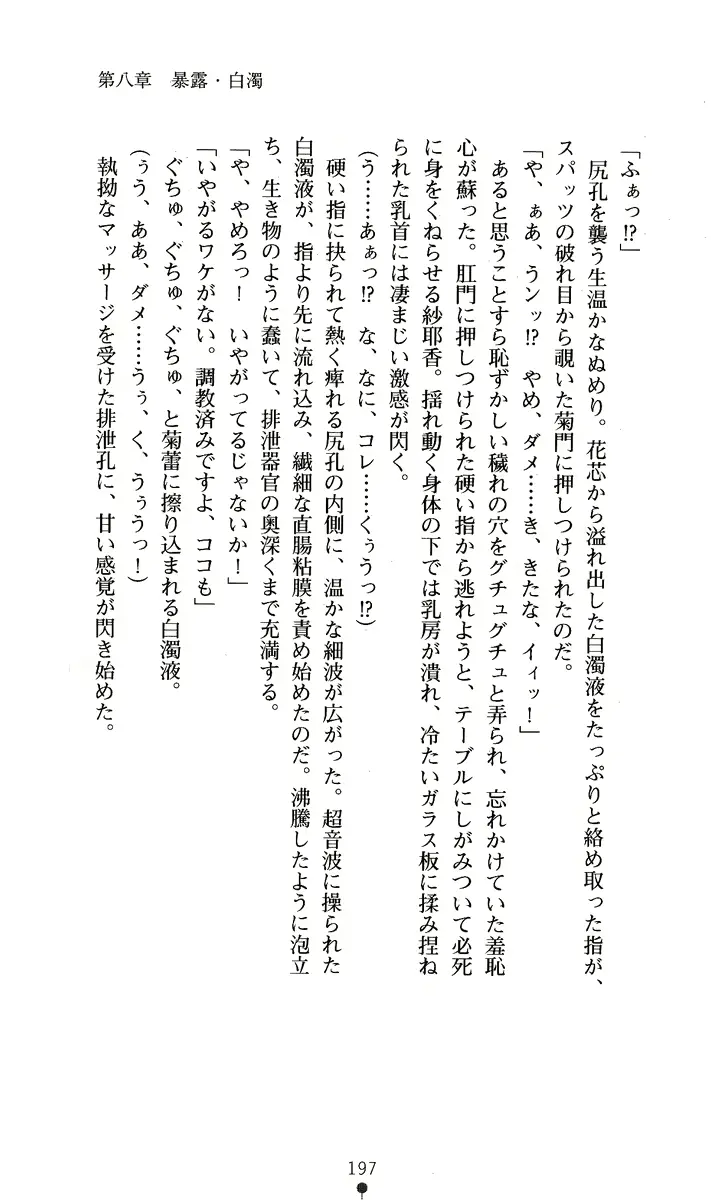 第八章　暴露・白濁
「ふぁっ!?」
　尻孔を襲う生温かなぬめり。花芯から溢れ出した白濁液をたっぷりと絡め取った指が、
スパッツの破れ目から覗いた菊門に押しつけられたのだ。
「や、ぁあ、うンッ!?　やめ、ダメ……き、きたな、イィッ！」
　あると思うことすら恥ずかしい穢れの穴をグチュグチュと弄られ、忘れかけていた羞恥
心が蘇った。肛門に押しつけられた硬い指から逃れようと、テーブルにしがみついて必死
に身をくねらせる紗耶香。揺れ動く身体の下では乳房が潰れ、冷たいガラス板に揉み捏ね
られた乳首には凄まじい激感が閃く。
（う……あぁっ!?　な、なに、コレ……くぅうっ!?）
　硬い指に抉られて熱く痺れる尻孔の内側に、温かな細波が広がった。超音波に操られた
白濁液が、指より先に流れ込み、繊細な直腸粘膜を責め始めたのだ。沸騰したように泡立
ち、生き物のように蠢いて、排泄器官の奥深くまで充満する。
「や、やめろっ！　いやがってるじゃないか！」
「いやがるワケがない。調教済みですよ、ココも」
　ぐちゅ、ぐちゅ、ぐちゅ、と菊蕾に擦り込まれる白濁液。
（ぅう、ああ、ダメ……うぅ、く、うぅうっ！）
　執拗なマッサージを受けた排泄孔に、甘い感覚が閃き始めた。
197